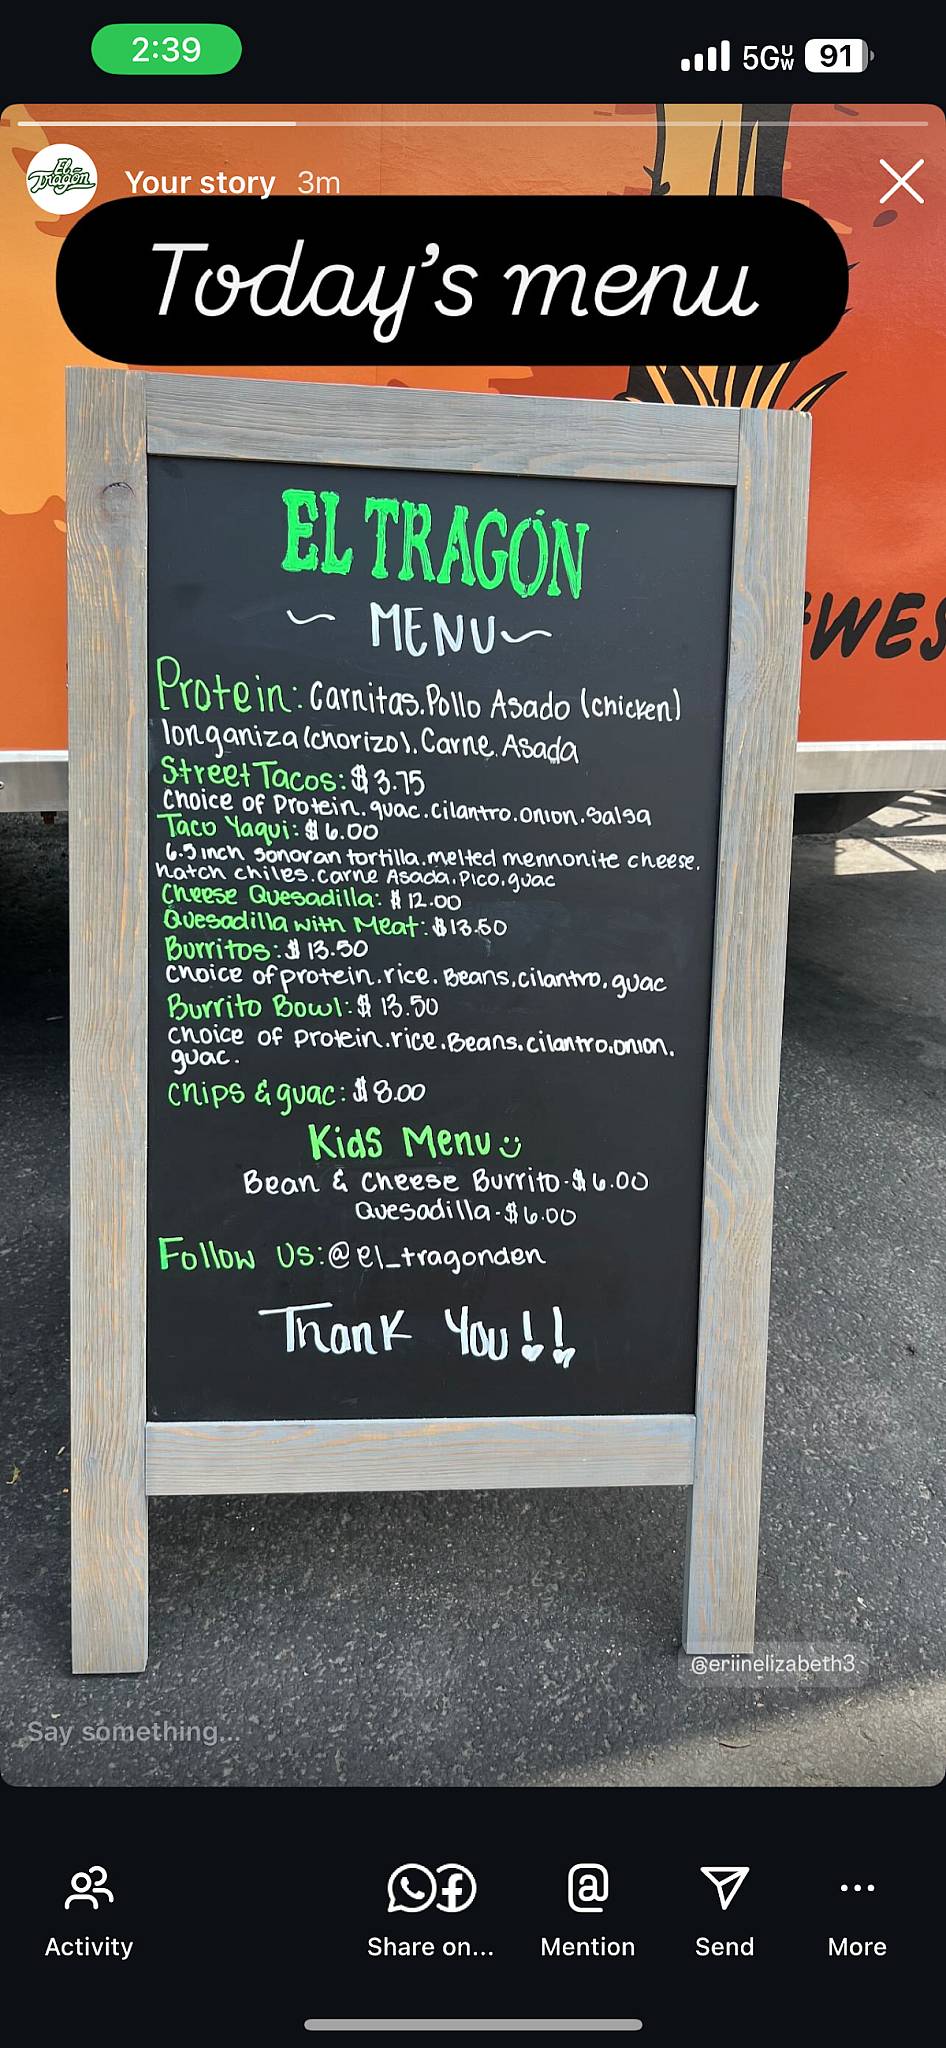 2:39
5GUW
91
El Tragón
Your story 3m
Today's menu
EL TRAGÓN
~ MENU ~
Protein: Carnitas. Pollo Asado (chicken)
longaniza (chorizo). Carne. Asada
Street Tacos: $3.75
Choice of Protein. guac. cilantro. onion. Salsa
Taco Yaqui: $6.00
6.5 inch sonoran tortilla. melted mennonite cheese.
hatch chiles. carne Asada. Pico. guac
Cheese Quesadilla: $12.00
Quesadilla with Meat: $13.50
Burritos: $13.50
Choice of protein. rice. Beans. cilantro. guac
Burrito Bowl: $13.50
Choice of Protein. rice. Beans. cilantro. onion.
guac.
Chips & guac: $8.00
Kids Menu
Bean & Cheese Burrito - $6.00
Quesadilla - $6.00
Follow Us: @el_tragonden
Thank You!!
@eriinelizabeth3
Say something...
Activity
Share on...
Mention
Send
More